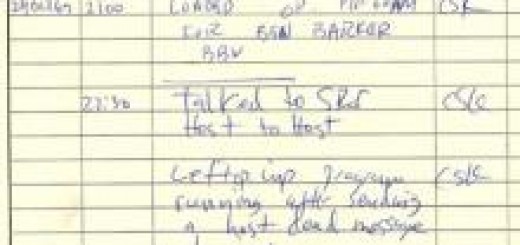 29 Oct 69 2100 LOADED OP. PROGRAM CSK
FOR BEN BARKER
BBV
22:30 Talked to SRI CSK
Host to Host
Left op imp program CSK
running after sending
a host dead message
to imp